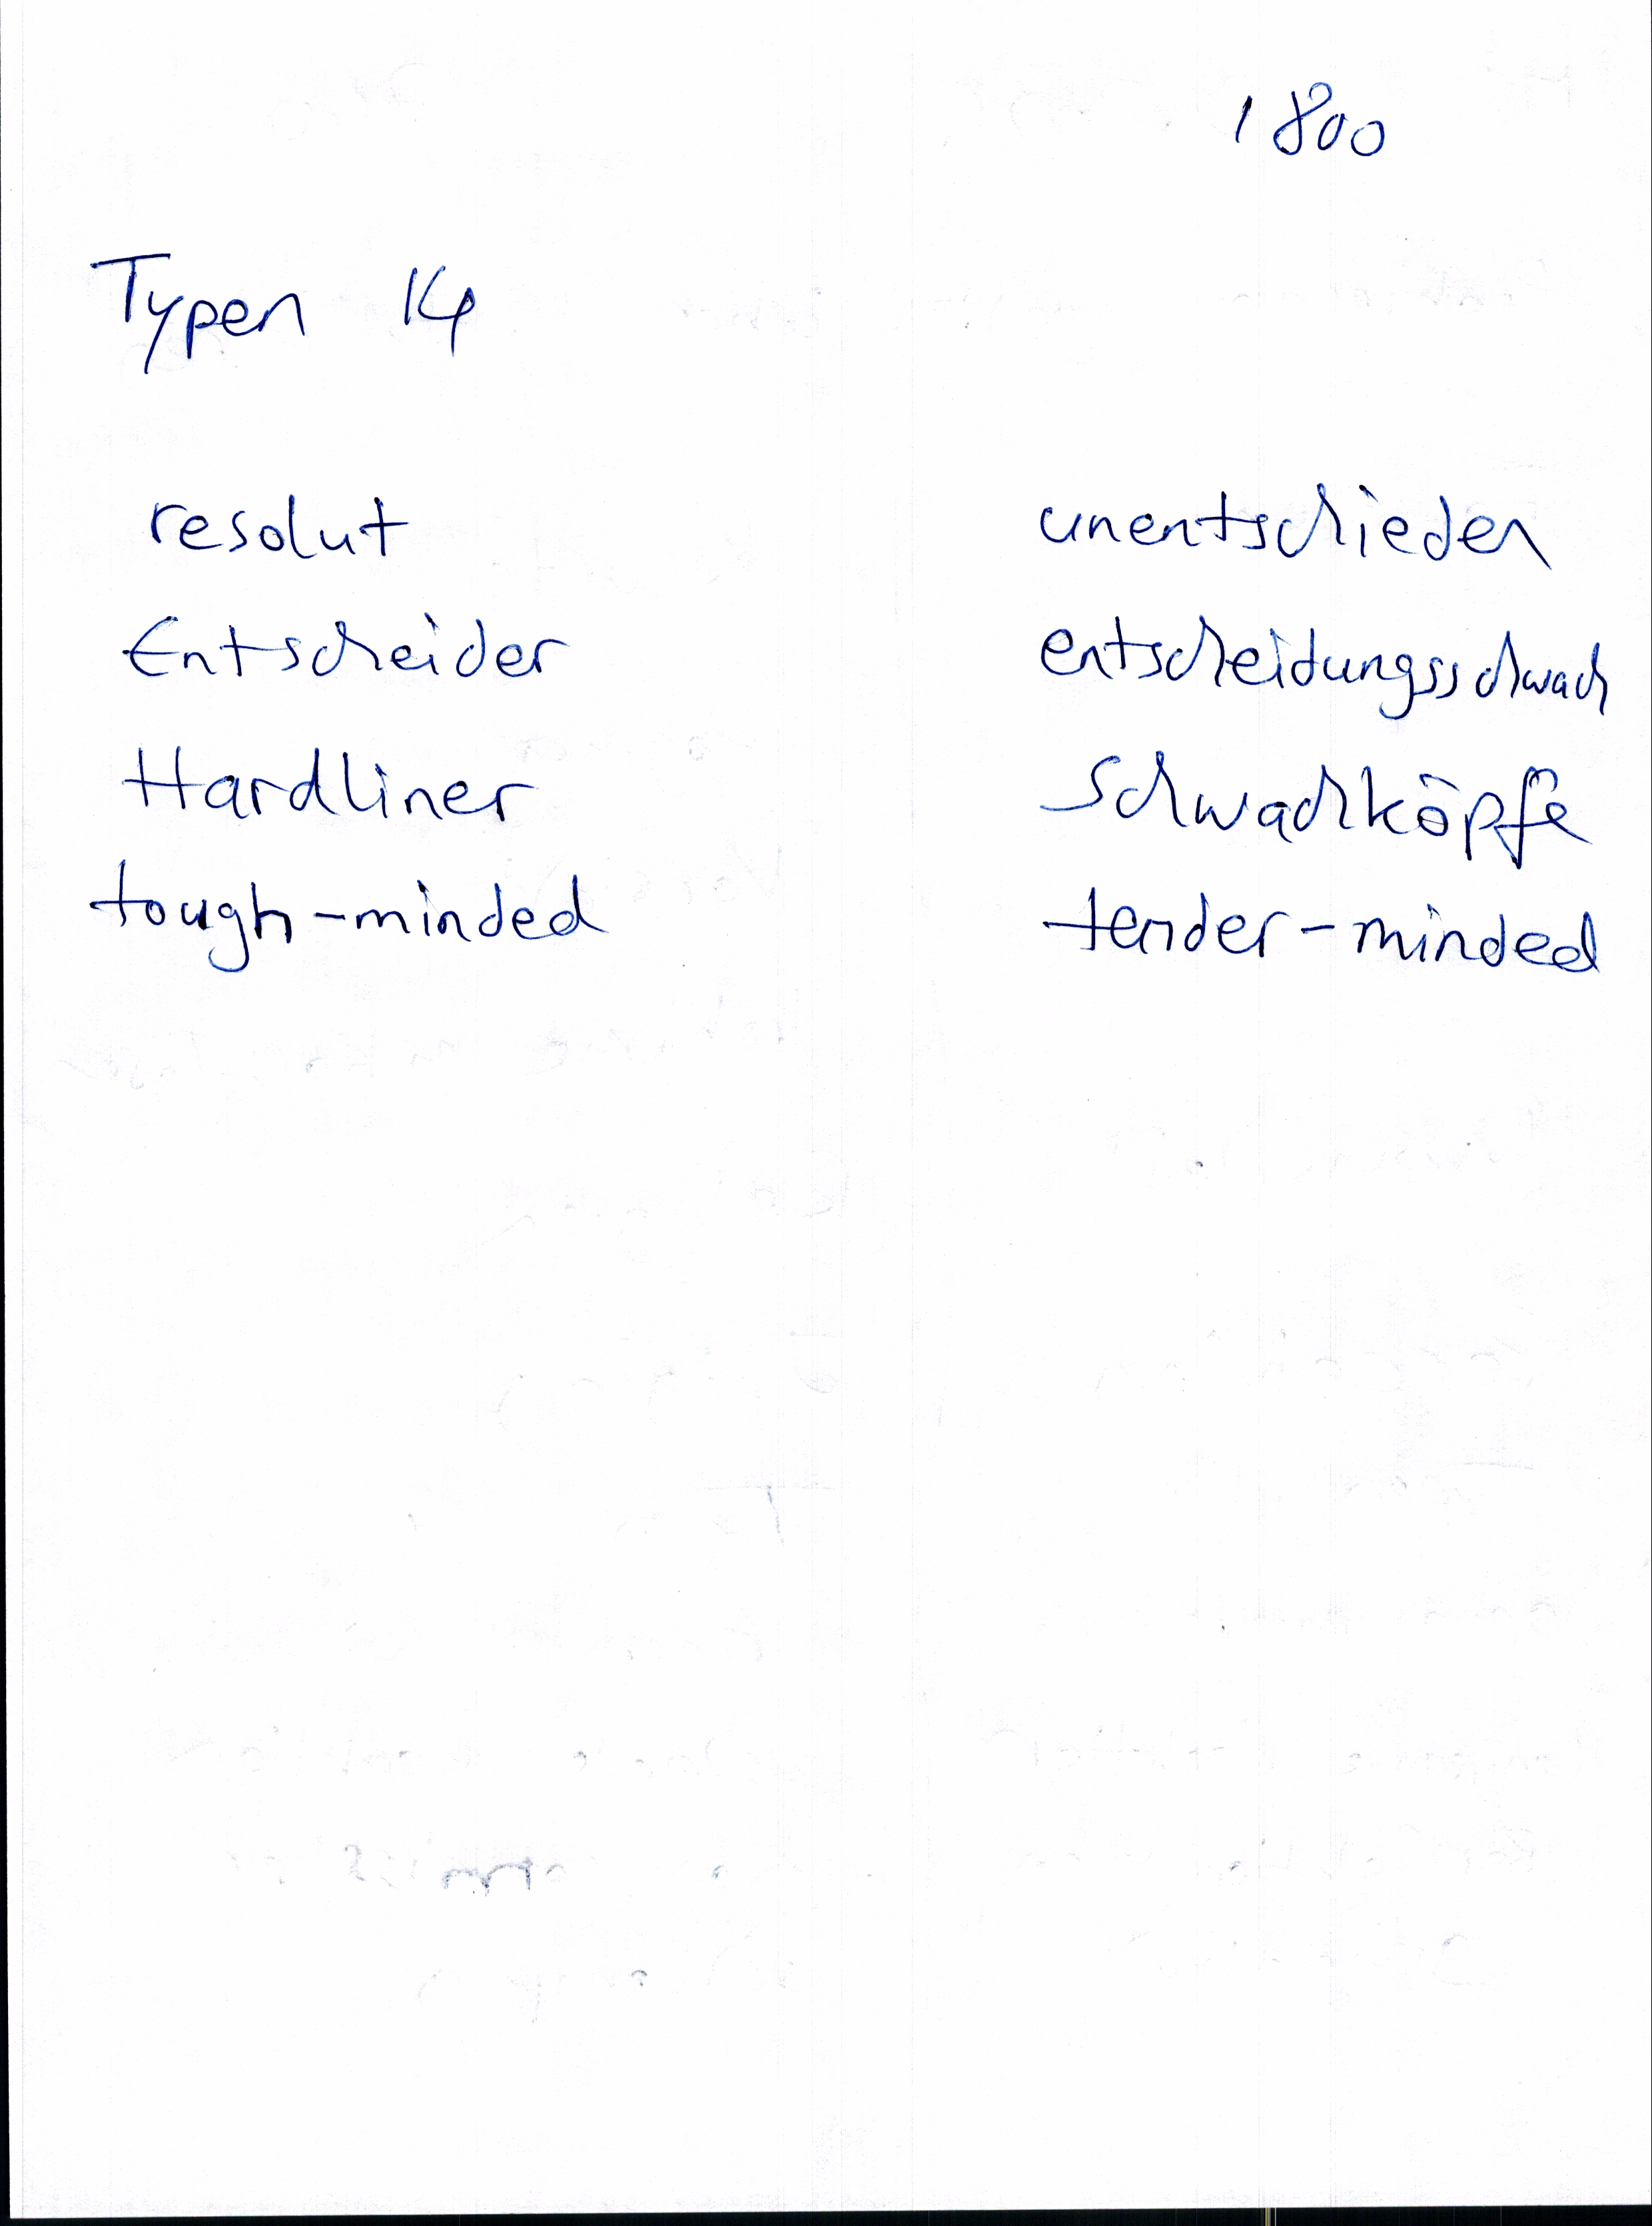 1800
Typen 14
resolut unentschieden
Entscheider entscheidungsschwach
Hardliner Schwachköpfe
tough-minded tender-minded